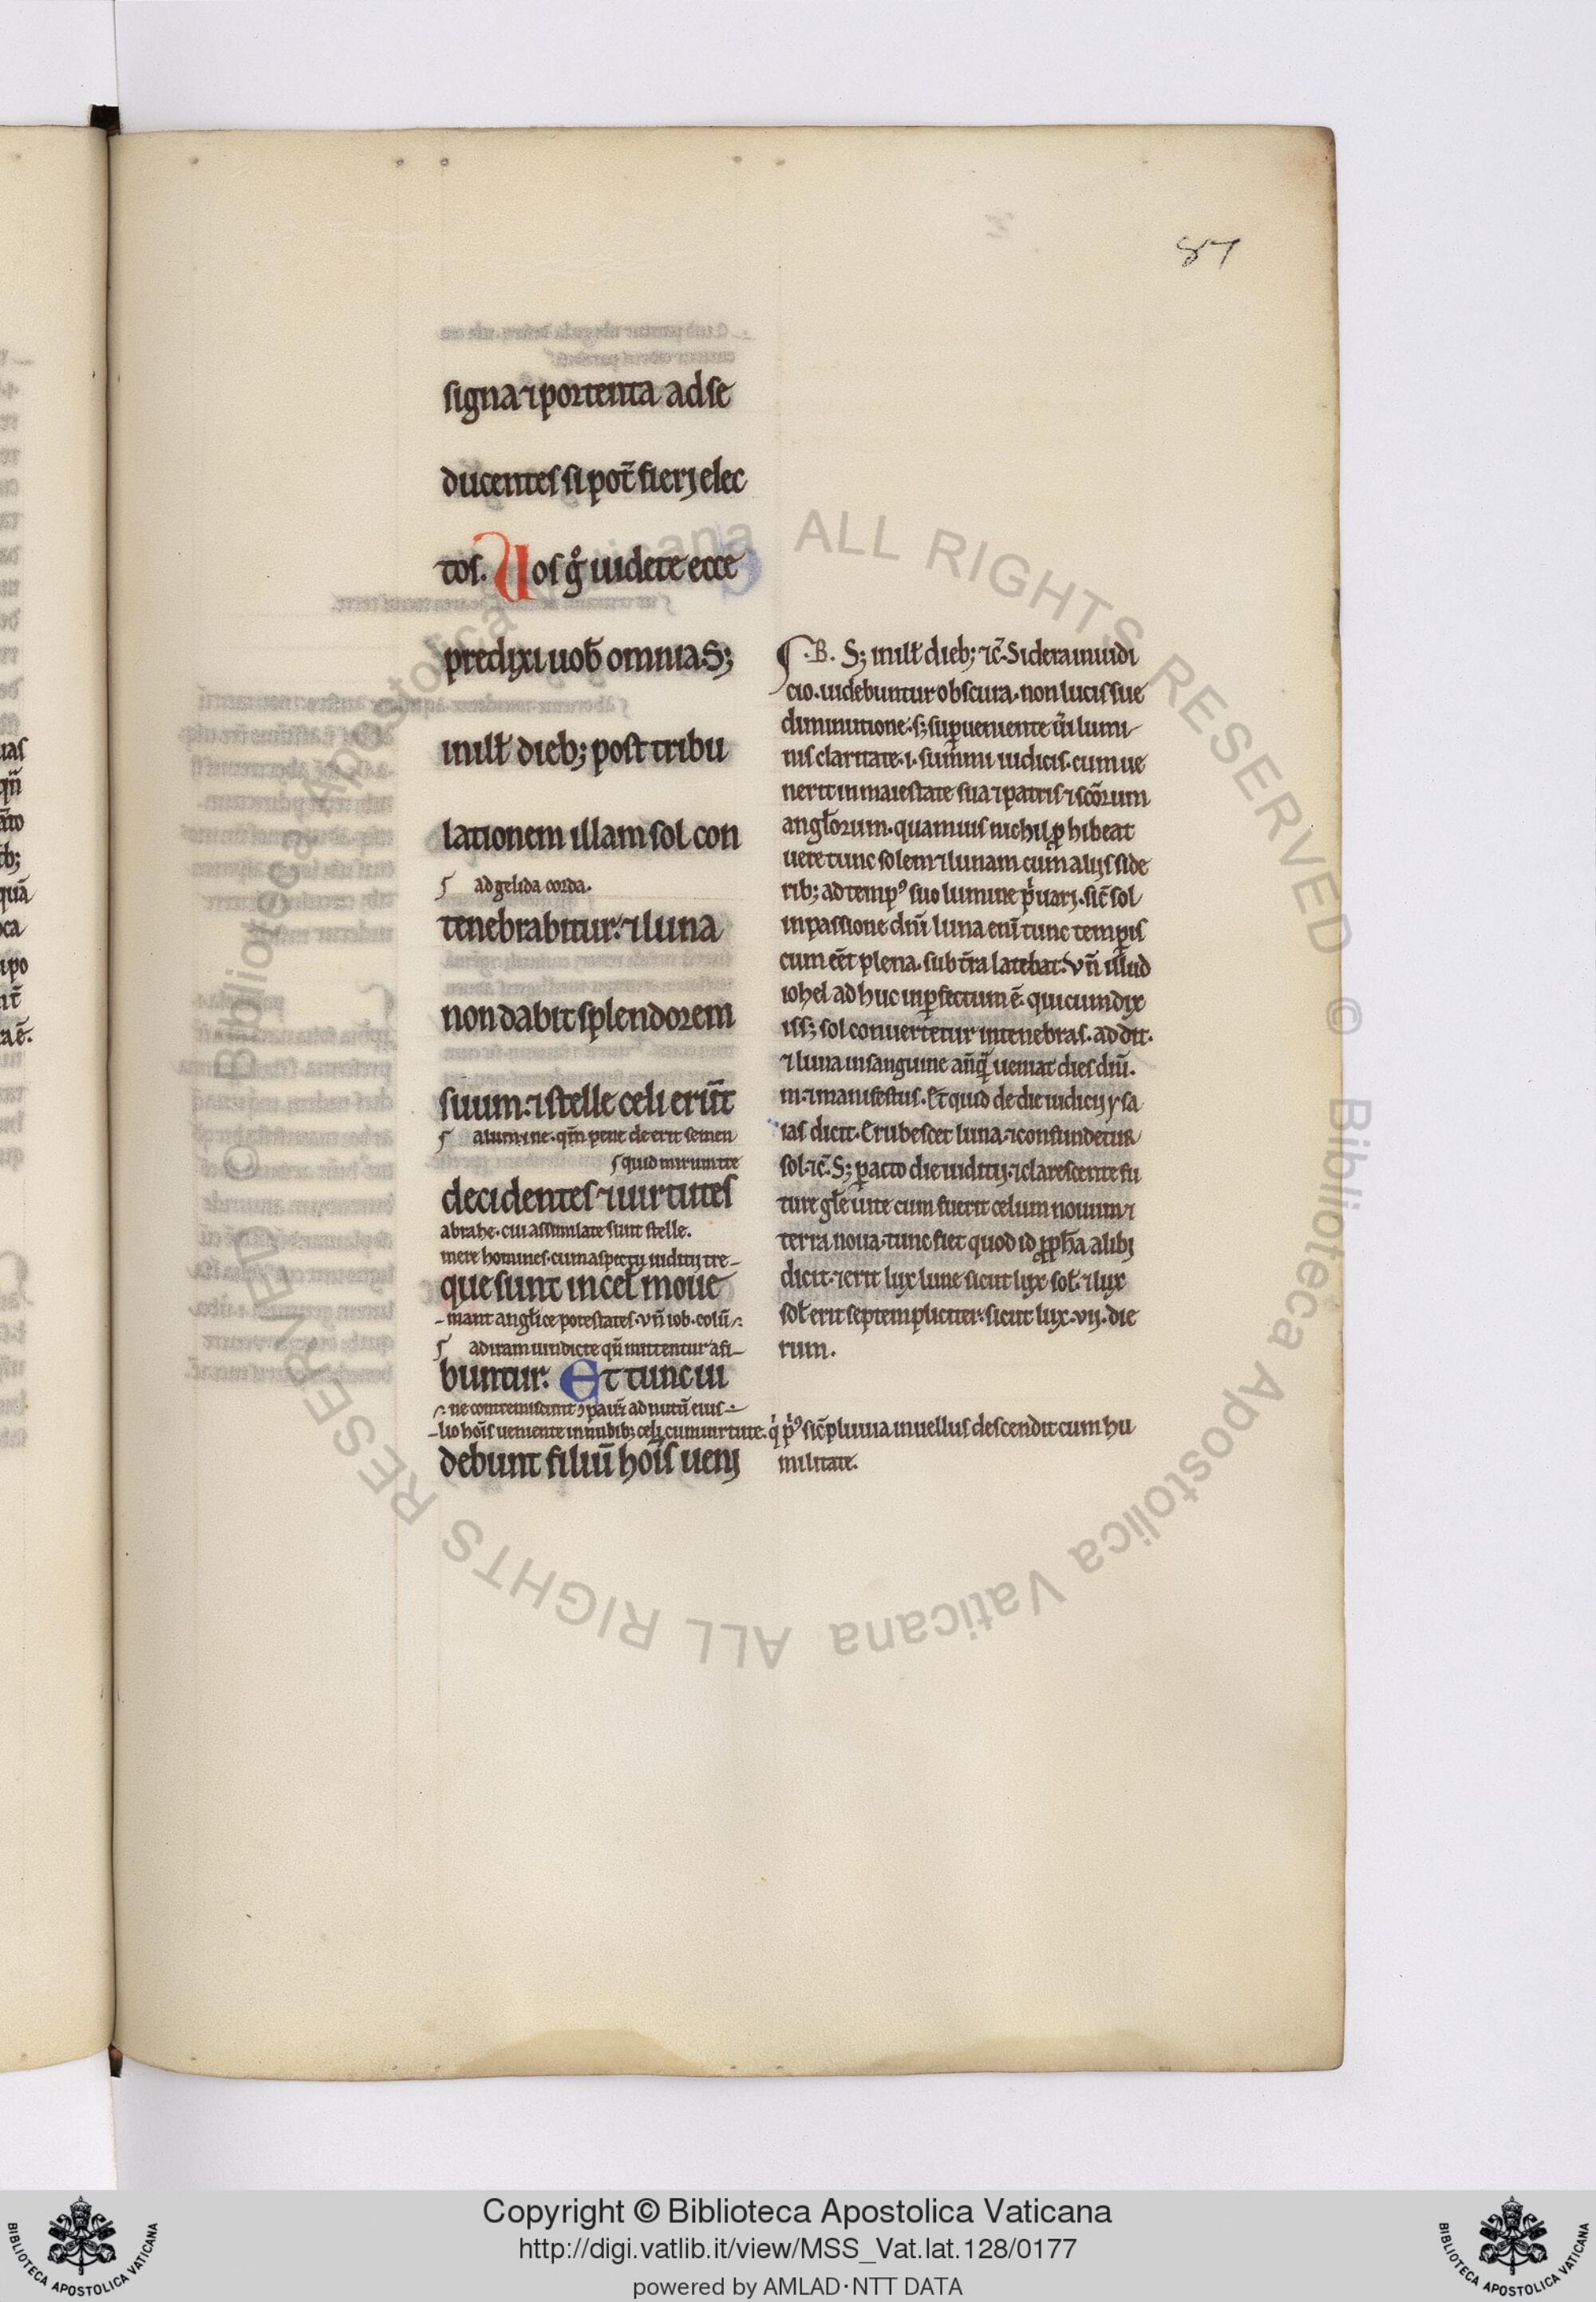 87
signa ⁊ portenta ad se
ducentes si pot̄ fierj elec
tos. Uos g̊ uidete ecce
predixi uob̄ omnia. S;
S; inill̄ dieb; ⁊c̄. Sidera in iudi
cio. uidebuntur obscura. non lucis sue
diminutione. s; superueniente ūi lumi
nis claritate .i. summi iudicis. cum ue
nerit in maiestate sua ⁊ patris ⁊ sc̄orum
angl̄orum. quamuis nichil prohibeat
uere tunc solem ⁊ lunam cum alijs side
rib; ad temp⁹ suo lumine p̍uarj. sic̄ sol
in passione dn̄i. luna eni tunc temp̄is
cum ee̅t plena. sub t̄ra latebat. Vn̄ illud
iohel adhuc inperfectum ē. qui cum dix
iss; sol conuertetur in tenebras. addit.
⁊ luna in sanguine an̄q̄ ueniat dies dn̄i.
m. ⁊ manifestus. Et quid de die iudicij ysa
ias dicit. Erubescet luna. ⁊ confundetur
sol. ⁊c̄. S; pacto die iudicij. ⁊ clarescente fu
ture gl̄e uite cum fuerit celum nouum ⁊
terra noua. tunc fiet quod id p̄ph̄a alibj
dicit. ⁊ erit lux lune sicut lux sol̄. ⁊ lux
sol̄ erit septempliciter. sicut lux .vij. die
rum.
inill̄ dieb; post tribu
lationem illam sol con
ad gelida corda.
tenebrabitur. ⁊ luna
non dabit splendorem
suum. ⁊ stelle celi eru̅t
a lumine. qm̄ pene deerit semen
quid mirum tre
decidentes ⁊ uirtutes
abrahe. cui assimilate sunt stelle.
mere homines. cum aspectu iudicij tre-
que sunt in cel̄ moue
-mant angl̄ice potestates. vn̄ iob. colū
ad iram uindicte qn̄ mittentur a fi-
buntur. Et tunc ui
ne contremiscunt ⁊ pauēt ad nutū eius
-lio hoīs ueniente in nubib; celj cum uirtute. q̍ p̍⁹ sic̄ pluuia in uellus descendit cum hu
militate.
debunt filiū hoīs uenj
Copyright © Biblioteca Apostolica Vaticana
http://digi.vatlib.it/view/MSS_Vat.lat.128/0177
powered by AMLAD·NTT DATA
BIBLIOTECA APOSTOLICA VATICANA
BIBLIOTECA APOSTOLICA VATICANA
© Biblioteca Apostolica Vaticana ALL RIGHTS RESERVED © Biblioteca Apostolica Vaticana ALL RIGHTS RESERVED